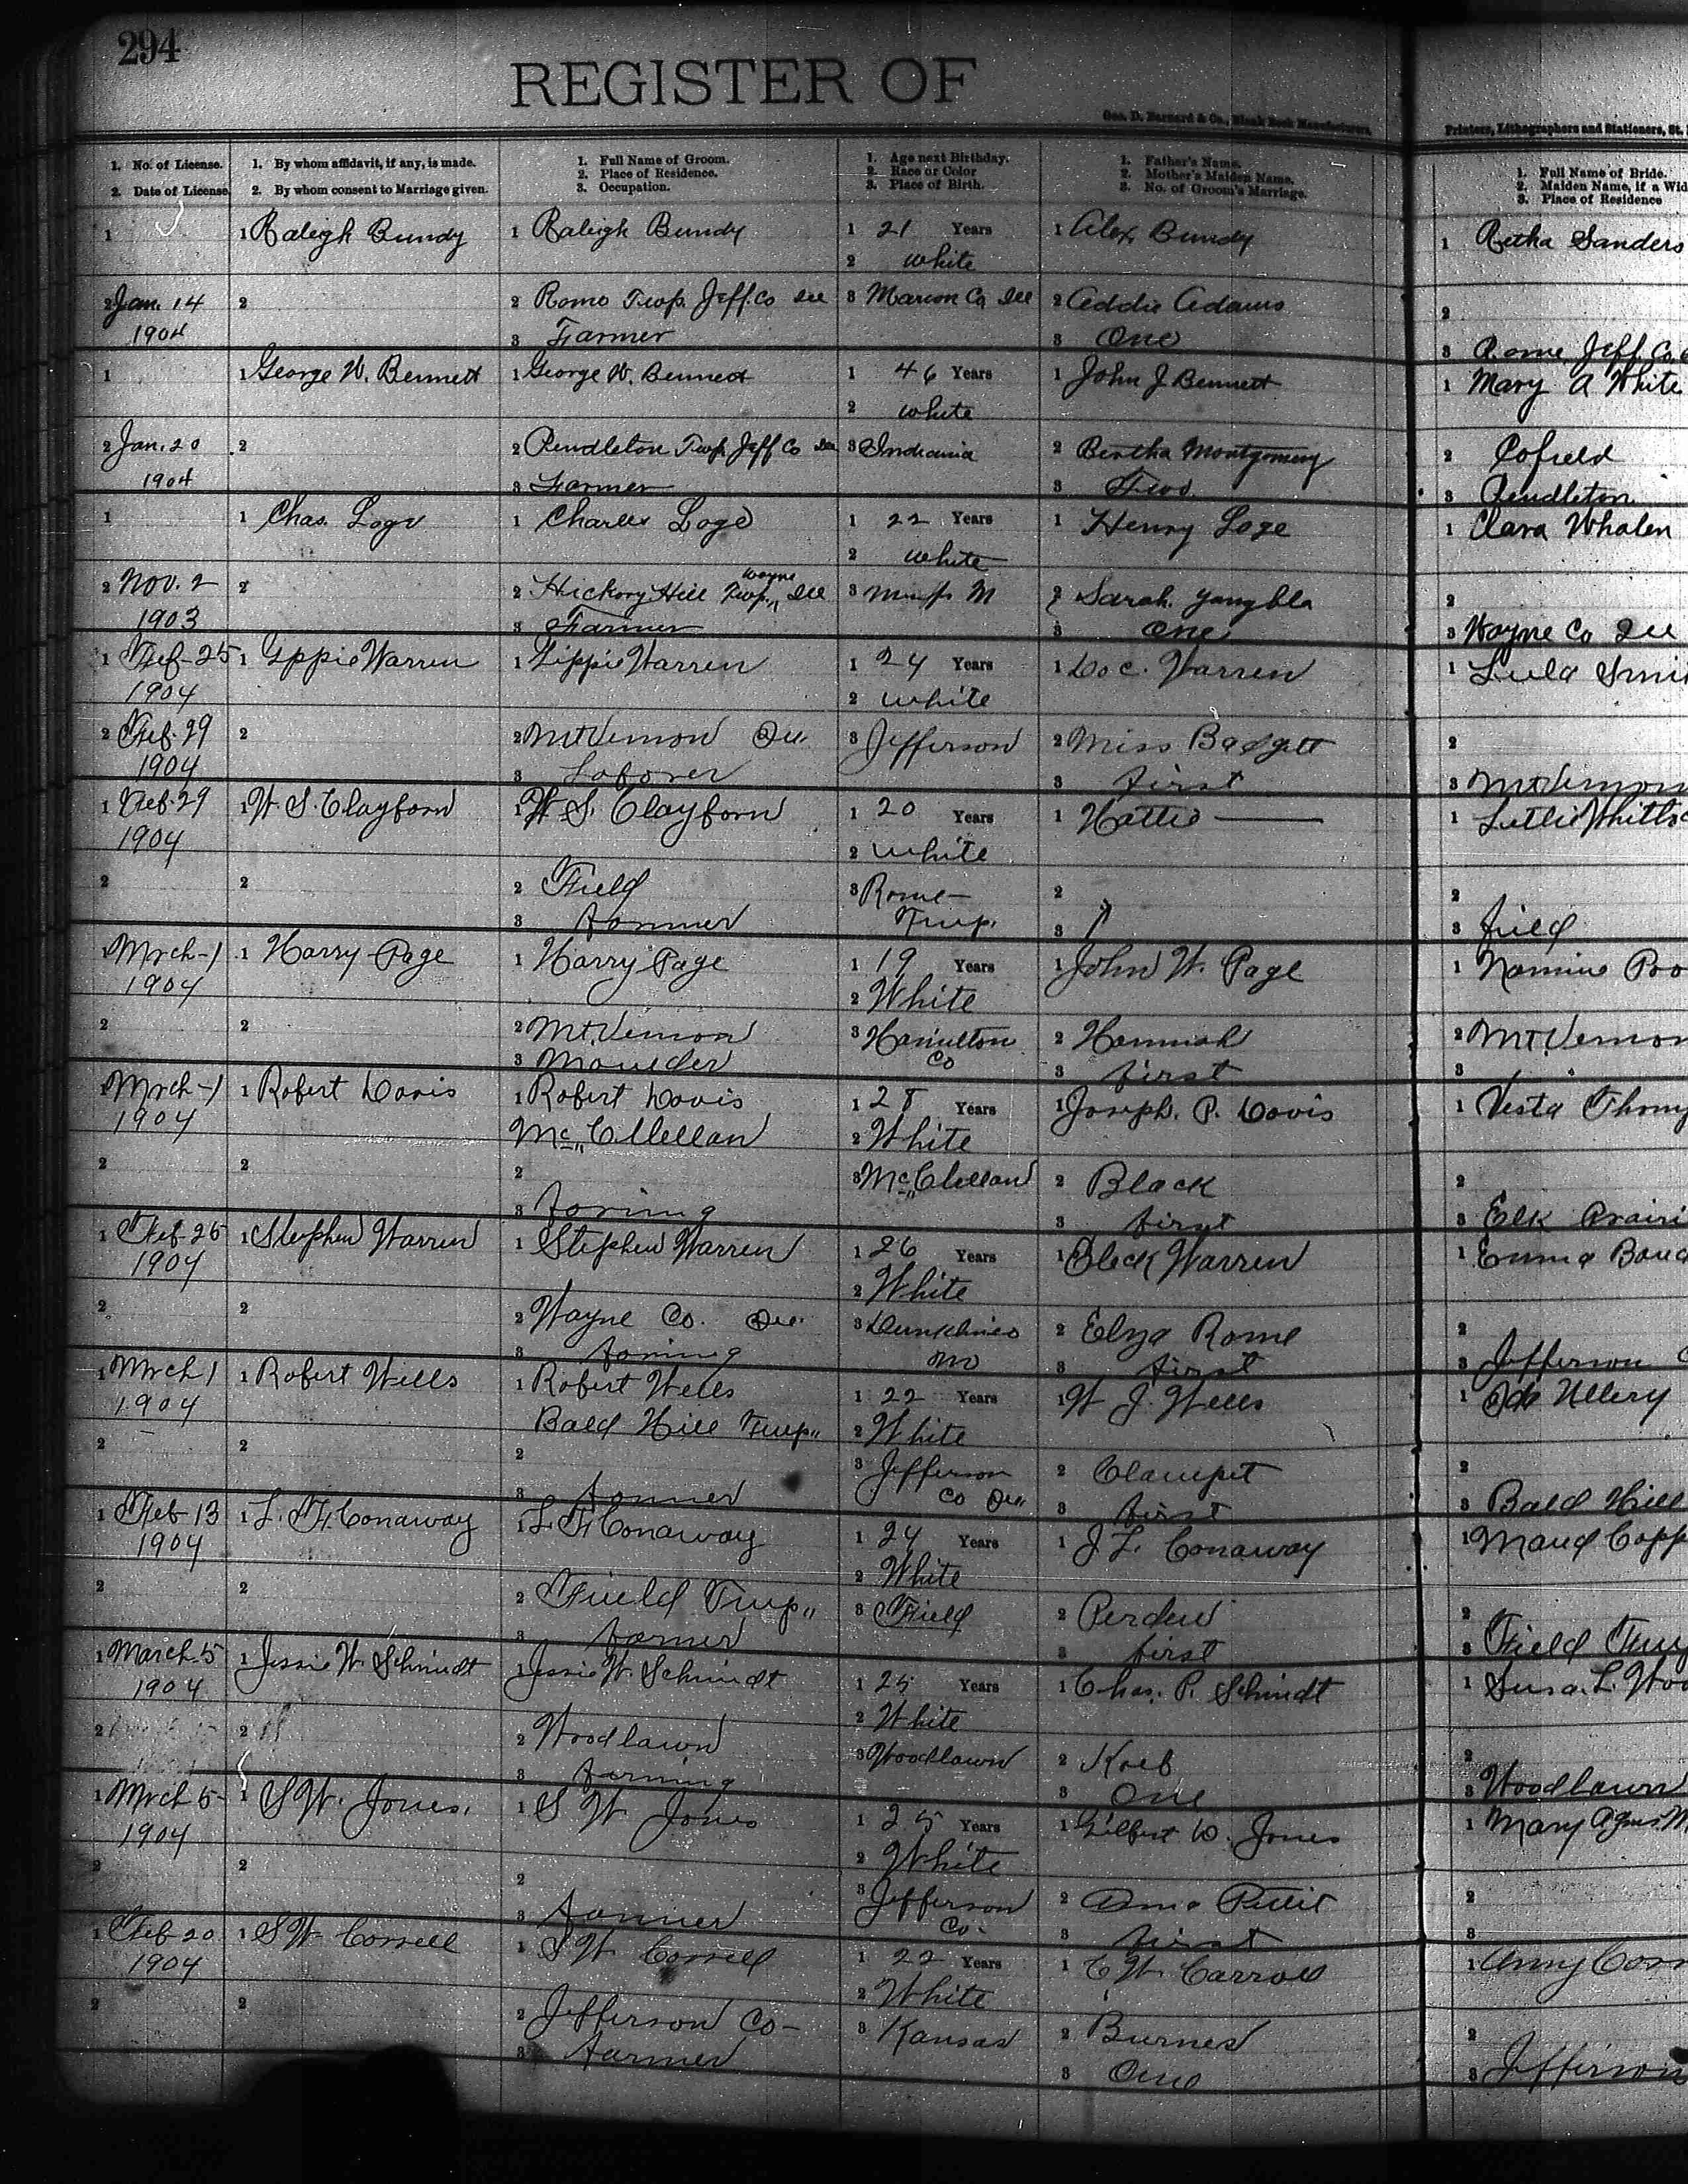 294
REGISTER OF
Geo. D. Barnard & Co., Blank Book Manufacturers,
Printers, Lithographers and Stationers, St.
1. No. of License. 1. By whom affidavit, if any, is made. 1. Full Name of Groom. 1. Age next Birthday. 1. Father's Name. 1. Full Name of Bride.
2. Date of License. 2. By whom consent to Marriage given. 2. Place of Residence. 2. Race or Color 2. Mother's Maiden Name. 2. Maiden Name, if a Wid
3. Occupation. 3. Place of Birth. 3. No. of Groom's Marriage. 3. Place of Residence
1 1 Raleigh Bundy 1 Raleigh Bundy 1 21 Years 1 Alex Bundy 1 Retha Sanders
2 white
2 Jan. 14 2 2 Rome Twp. Jeff. Co Ill 3 Marion Co Ill 2 Addie Adams 2
1904 3 Farmer 3 One 3 Rome, Jeff. Co
1 1 George W. Bennett 1 George W. Bennett 1 46 Years 1 John J Bennett 1 Mary A White
2 white
2 Jan. 20 2 2 Pendleton Twp Jeff Co Ill 3 Indiania 2 Bertha Montgomery 2 Cofield
1904 3 Farmer 3 Two. 3 Pendleton
1 1 Chas. Loge 1 Charles Loge 1 22 Years 1 Henry Loge 1 Clara Whalen
2 white
wayne
2 Nov. 2 2 2 Hickory Hill Twp. Ill 3 2 Sarah 2
1903 3 Farmer 3 One 3 Wayne Co Ill
1 Feb-25 1 Warren 1 Lippie Warren 1 24 Years 1 Doc. Warren 1 Lula Smi
1904 2 white
2 Feb. 29 2 2 Mt Vernon Ill. 3 Jefferson 2 Miss Badgett 2
1904 3 Laborer 3 first 3 Mt Vernon
1 Feb. 29 1 W. S. Clayborn 1 W. S. Clayborn 1 20 Years 1 Hattie — 1
1904 2 White
2 2 2 Field 3 Rome- 2 2
3 farmer Twp. 3 3 field
1 Mrch-1 1 Harry Page 1 Harry Page 1 19 Years 1 John W. Page 1
1904 2 White
2 2 2 Mt. Vernon 3 Hamilton 2 Hannah 2 Mt. Vernon
3 Moulder Co 3 first 3
1 Mrch-1 1 Robert Davis 1 Robert Davis 1 28 Years 1 Joseph. P. Davis 1 Vesta Thomp
1904 Mc. Clellan 2 White
2 2 2 3 Mc. Clellan 2 Black 2
3 farming 3 first 3 Elk Prairi
1 Feb-25 1 Stephen Warren 1 Stephen Warren 1 26 Years 1 Eleck Warren 1 Emma
1904 2 White
2 2 2 Wayne Co. Ill. 3 2 Elza Rome 2
3 farming Mo 3 first 3 Jefferson C
1 Mrch 1 1 Robert Wells 1 Robert Wells 1 22 Years 1 W J. Wells 1 Ida Ullery
1904 Bald Hill Twp. 2 White
2 2 2 3 Jefferson 2 Clampet 2
3 farmer Co Ill. 3 first 3 Bald Hill
1 Feb-13 1 L. F. Conaway 1 L. F. Conaway 1 24 Years 1 J L. Conaway 1 Maud Copp
1904 2 White
2 2 2 Field Twp. 3 Field 2 Perdew 2
3 farmer 3 first 3 Field Twp
1 March. 5 1 Jessie W. Schmidt 1 Jessie W. Schmidt 1 25 Years 1 Chas. P. Schmidt 1 Susa. L. Woo
1904 2 White
2 2 2 Woodlawn 3 Woodlawn 2 Koeb 2
3 farming 3 One 3 Woodlawn
1 Mrch 5- 1 S W. Jones. 1 S W Jones 1 25 Years 1 Gilbert W. Jones 1 Mary Agnes M
1904 2 White
2 2 2 3 Jefferson 2 2
3 farmer Co. 3 first 3
1 Feb-20 1 S W Correll 1 S W Correll 1 22 Years 1 C W. Carroll 1
1904 2 White
2 2 2 Jefferson Co- 3 Kansas 2 Burnes 2
3 Farmer 3 One 3 Jefferson